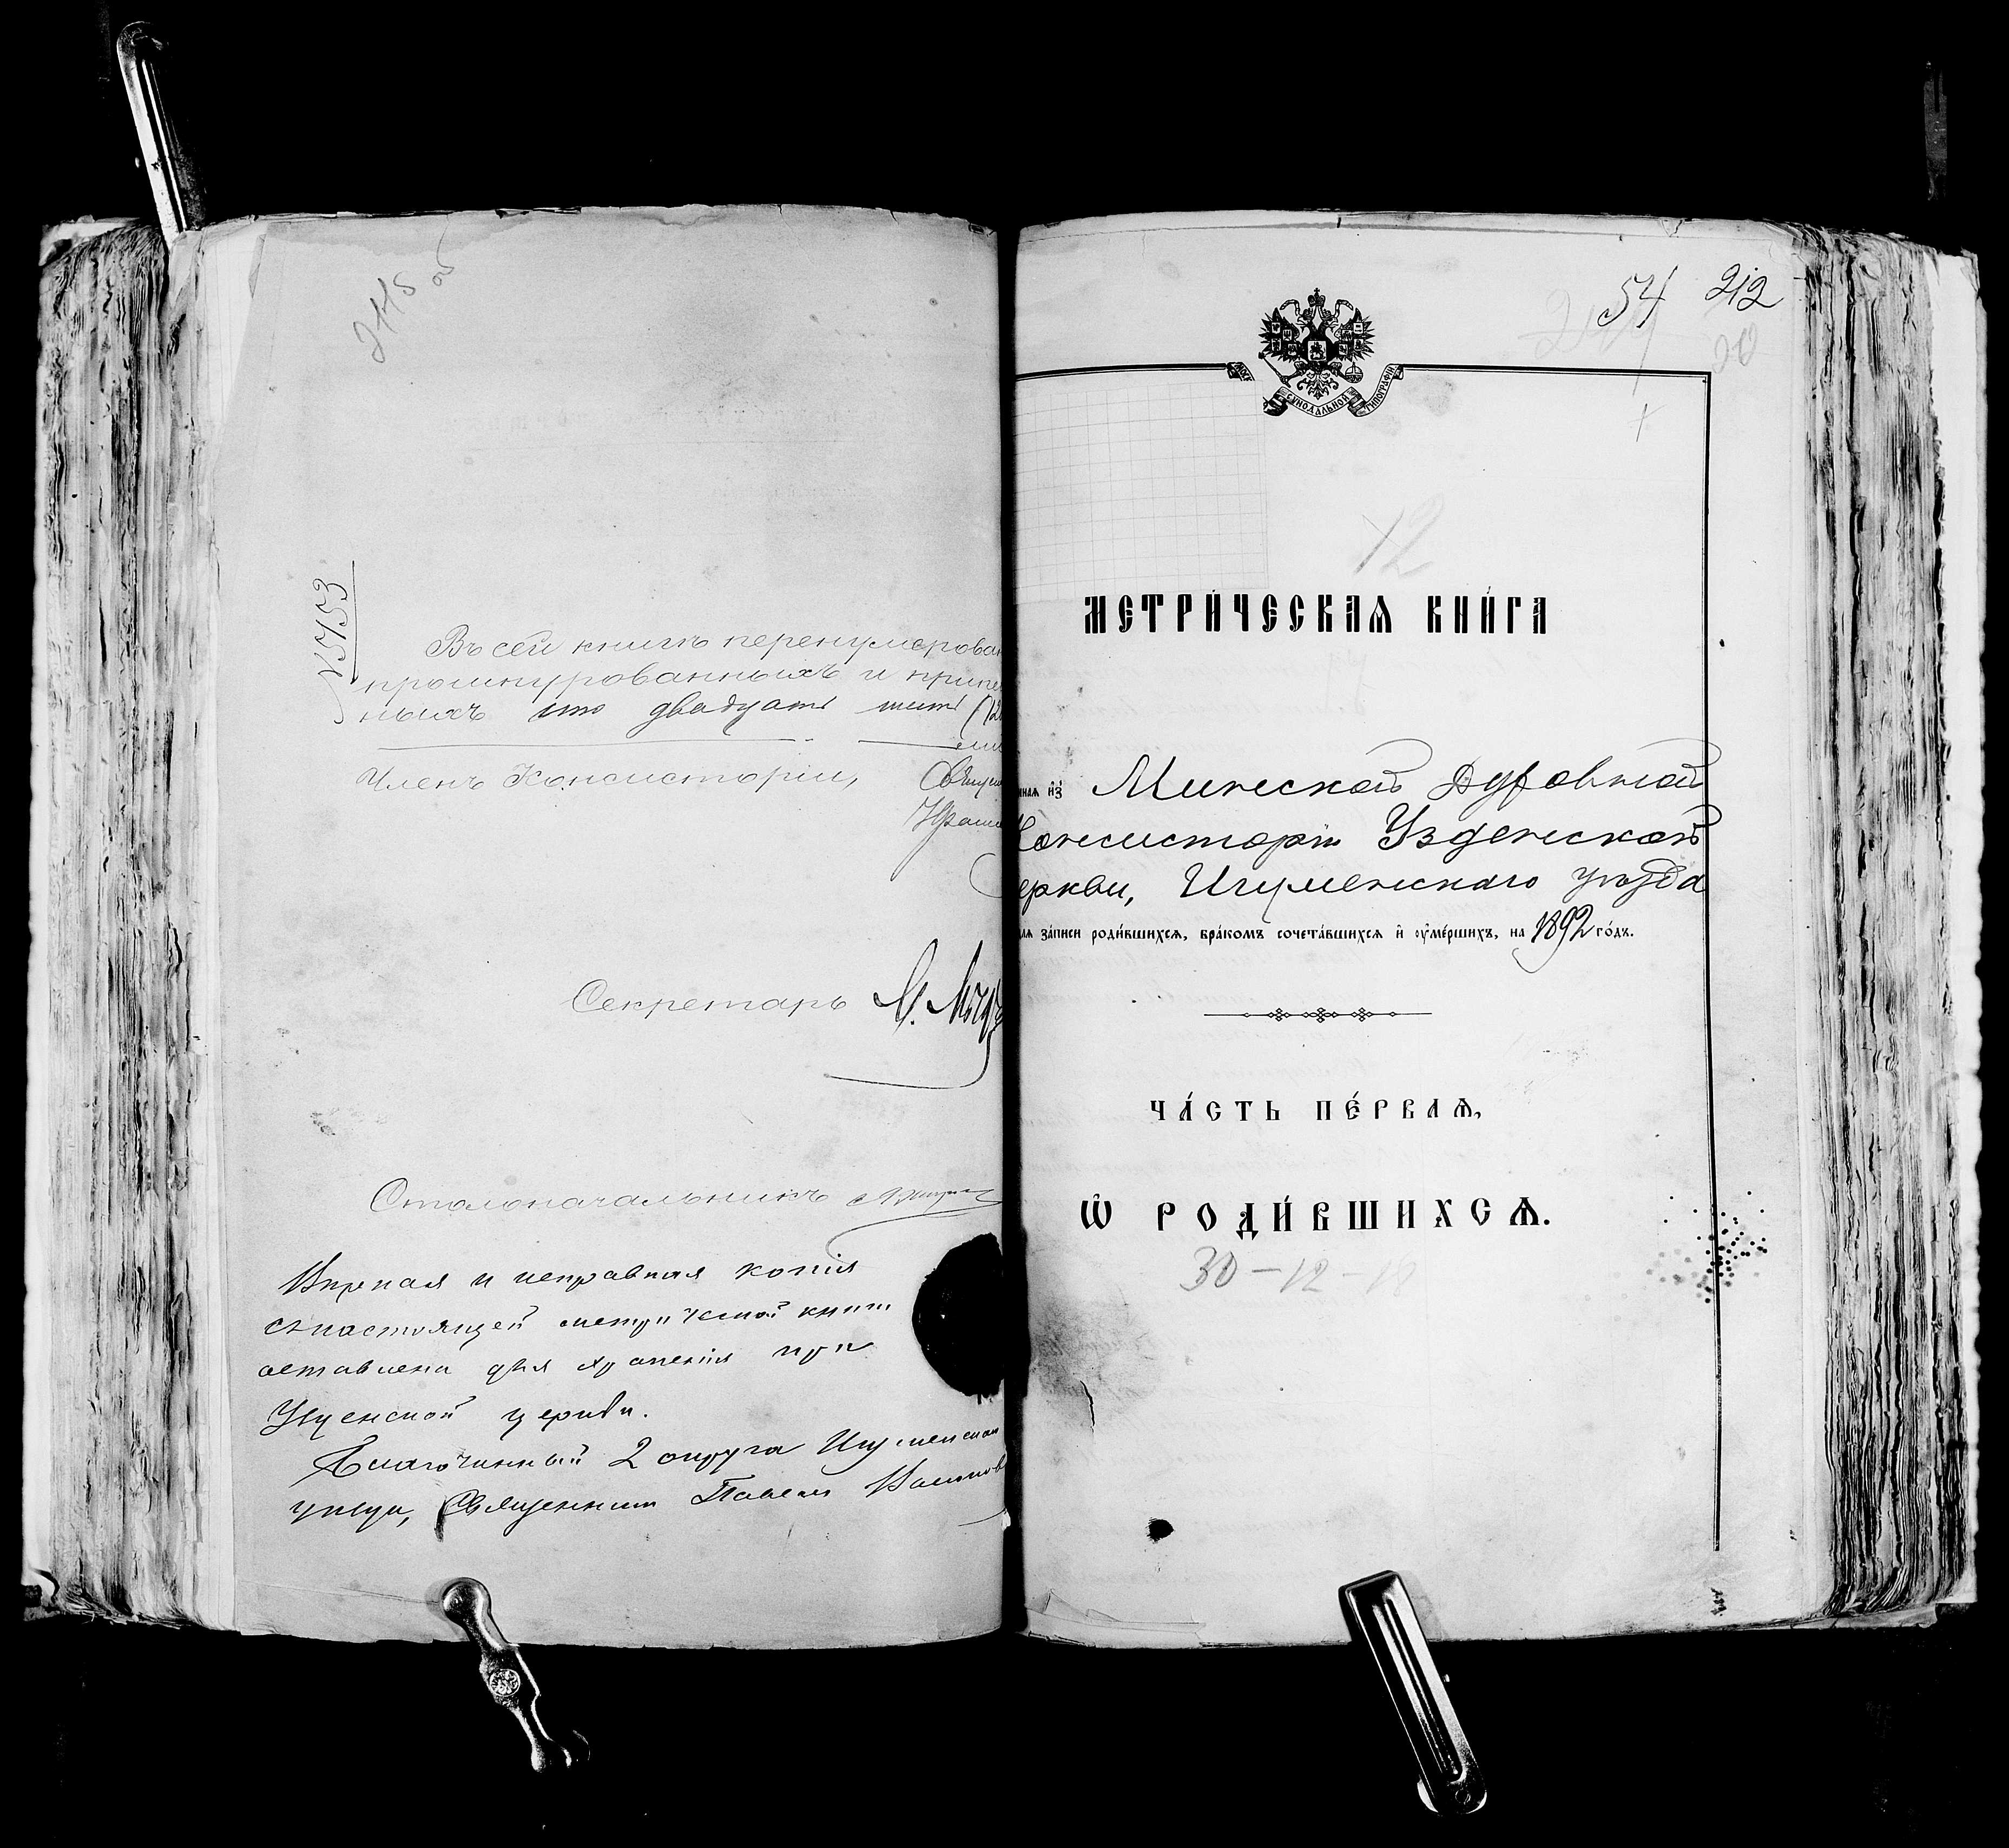 211 об
№ 5753
Въ сей книгѣ перенумерован
прошнурованныхъ и припе
ныхъ сто двадцать шесть (12
Членъ Консисторіи, Священ
Секретарь
Столоначальникъ
Вѣрная и исправная копія
съ настоящей метрической книги
оставлена для храненія при
Узденской церкви.
Благочинный 2 округа Игуменскаго
уѣзда, Священникъ Павелъ
54 212
20
СѴНОДАЛЬНОЙ ТИПОГРАФІИ
12
МЕТРИ́ЧЕСКАѦ КНИ́ГА
нная и҆з̾ Минской Духовной
Консисторіи Узденской
еркви, Игуменскаго уѣзда
для за́писи роди́вшихсѧ, бра́комъ сочета́вшихсѧ и҆ ѹ҆ме́ршихъ, на 1892 го́дъ.
ЧА́СТЬ ПЕ́РВАѦ,
Ѡ҆ РОДИ́ВШИХСѦ.
30-12-12